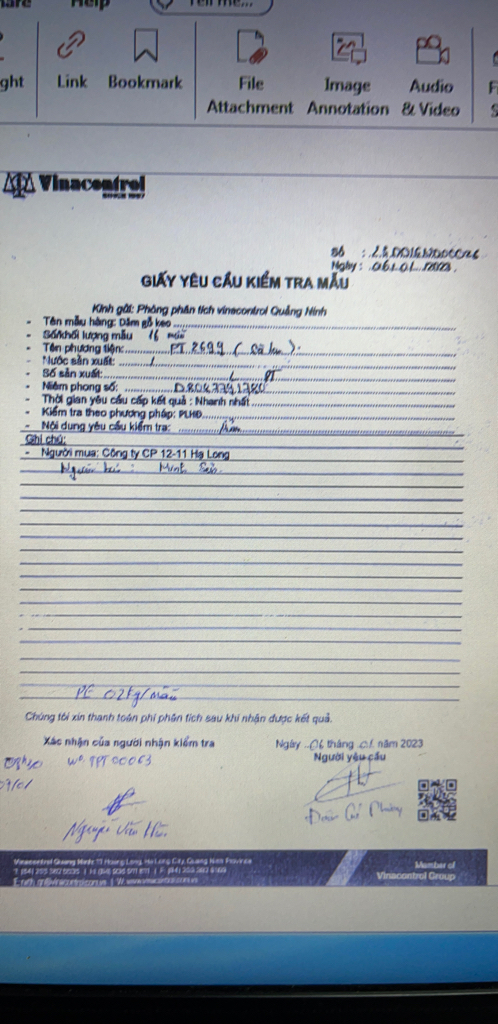 Help
Tell me...
Link Bookmark File Attachment Image Annotation Audio & Video
Vinacontrol
SINCE 1957
Số :
Ngày : 06/01/2023.
GIẤY YÊU CẦU KIỂM TRA MẪU
Kính gửi: Phòng phân tích vinacontrol Quảng Ninh
- Tên mẫu hàng: Dăm gỗ keo
- Số/khối lượng mẫu 16 mẫu
- Tên phương tiện: PT 2699
- Nước sản xuất: /
- Số sản xuất: /
- Niêm phong số:
- Thời gian yêu cầu cấp kết quả : Nhanh nhất
- Kiểm tra theo phương pháp: PLHĐ
- Nội dung yêu cầu kiểm tra: Ẩm
Ghi chú:
- Người mua: Công ty CP 12-11 Hạ Long
Người bán : Minh
PE 02kg/mẫu
Chúng tôi xin thanh toán phí phân tích sau khi nhận được kết quả.
Xác nhận của người nhận kiểm tra
Ngày 06 tháng 01 năm 2023
Người yêu cầu
TPT00063
Nguyễn Văn
Vinacontrol Quang Ninh: 11 Hoang Long, Ha Long City, Quang Ninh Province
Member of
Vinacontrol Group